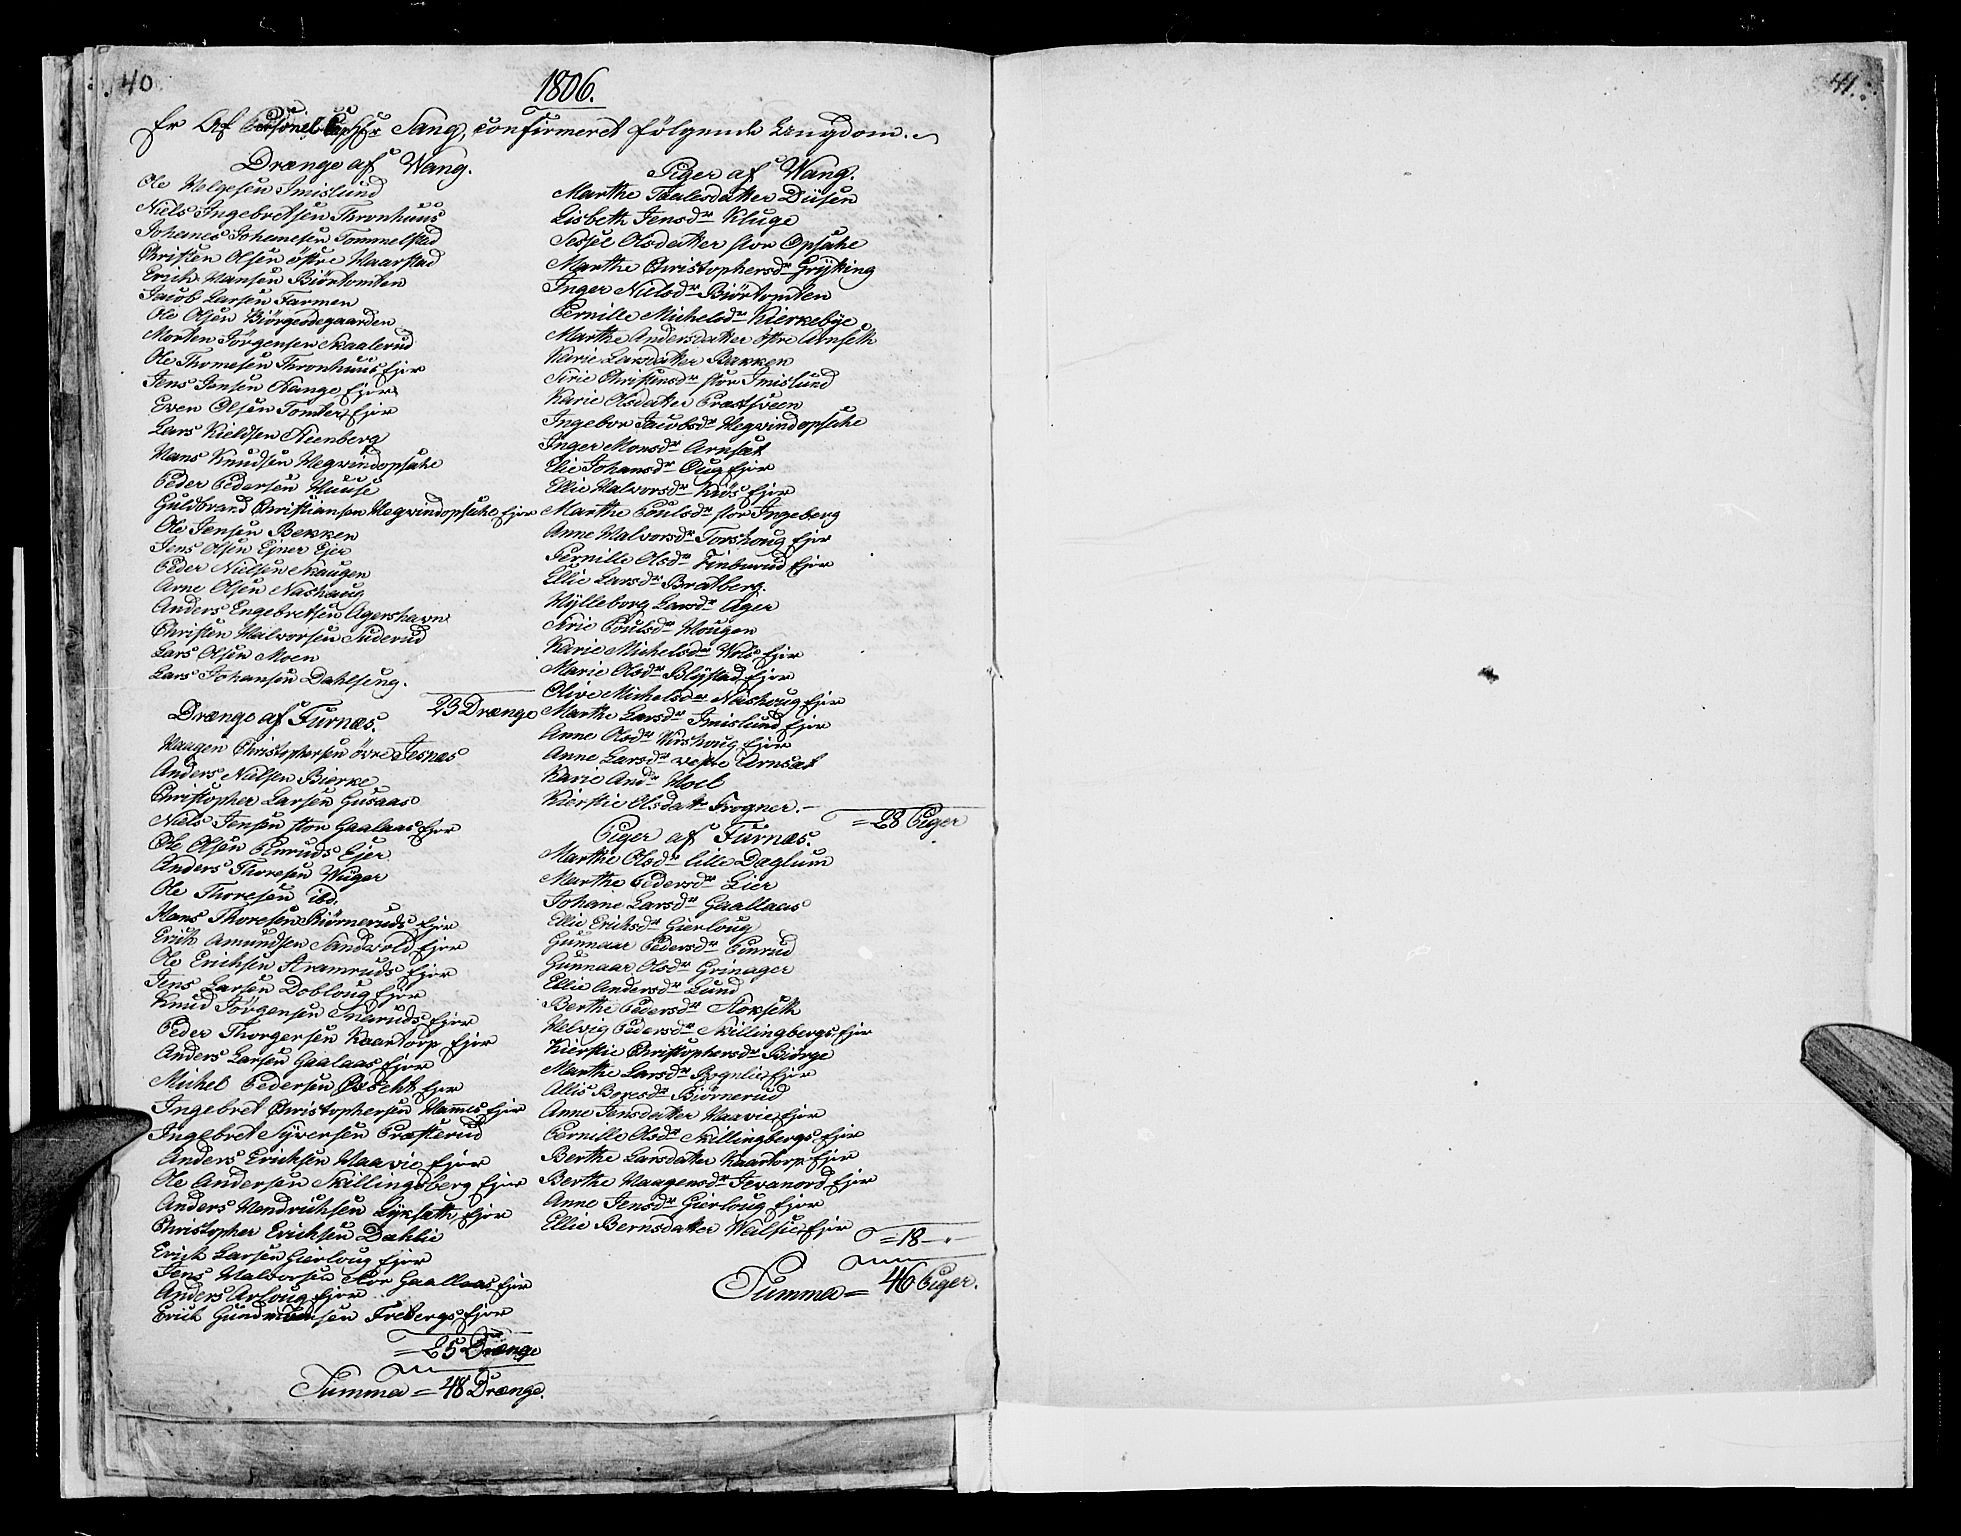 40
1806.
Er Af Personel Capp: Sang, confirmeret følgende Ungdom.
Drænge af Wang.
Ole Helgesen Imislund
Niels Ingebretsen Thronhuus
Johanes Johanesen Tommelstad
Christen Olsen östre Haarstad
Erich Hansen Biörtomten
Jacob Larsen Farmen
Ole Olsen Biörgeødegaarden
Morten Jörgensen Skaalerud
Ole Thomesen Thronhuus Ejer
Jens Jensen Kange Ejer
Even Olsen Tomter Ejer
Lars Kieldsen Steenberg
Hans Knudsen Hegvindopsahe
Peder Pedersen Huuse
Guldbrand Christiansen Hegvindopsahe Ejer
Ole Jensen Bekken
Jens Olsen Ejner Ejer
Peder Nielsen Skaugen
Arne Olsen Nashaug
Anders Engebretsen Agershavn
Christen Halvorsen Tuderud
Lars Olsen Moen
Lars Johansen Dahlseng.
23 Drænge
Drænge af Furnæs.
Haagen Christophersen övre Jesnæs
Anders Nielsen Bierke
Christopher Larsen Gusaas
Niels Jensen stor Gaalaas Ejer
Ole Olsen Enruds Ejer
Anders Thoresen Wuger
Ole Thoresen ibd.
Hans Thoresen Biörneruds Ejer
Erich Amundsen Sandvold Ejer
Ole Erichsen Stramruds Ejer
Jens Larsen Dobloug Ejer
Knud Jörgensen Snaruds Ejer
Peder Thorgersen Kaartorp Ejer
Anders Larsen Gaalaas Ejer
Michel Pedersen Ejer
Ingebret Christophersen Hames Ejer
Ingebret Syversen Præsterud
Anders Erichsen Haavie Ejer
Ole Andersen Skillingsberg Ejer
Anders Hendrichsen Lyksæth Ejer
Christopher Erichsen Dahlie
Erich Larsen Gierloug Ejer
Jens Halvorsen Stor Gaallaas Ejer
Anders Arloug Ejer
Erich Gundmundsen Frebergs Ejer
= 25 Drænge
Summa = 48 Drænge.
Piger af Wang.
Marthe Paalsdatter Düsen
Lisbeth Jensdr Kluge
Sessel Olsdatter stor Opsahe
Marthe Christophersdr Gryting
Inger Nielsdr Biörtomten
Pernille Michelsdr Kierkebye
Marthe Andersdatter östre Arnseth
Karie Larsdatter Bakken
Sirie Christensdr stor Imislund
Karie Olsdatter Præstsveen
Ingebor Jacobsdr Hegvindopsahe
Inger Monsdr Arnsæt
Elie Johansdr Oug Ejer
Ellie Halvorsdr Kiös Ejer
Marthe Poulsdr stor Ingeberg
Anne Halvorsdr Torshoug Ejer
Pernille Olsdr Finborud Ejer
Ellie Larsdr Bratberg.
Hylleborg Larsdr Ager
Sirie Poulsdr Hougen
Karie Michelsdr Wols Ejer
Marie Olsdr Blystad Ejer
Olive Michelsdr Nashoug Ejer
Marthe Larsdr Imislund Ejer
Anne Olsdr Korshoug Ejer
Anne Larsdr vestre Arnsæt
Karie Andr Hoel
Kierstie Olsdatr Frogner.
= 28 Piger
Piger af Furnæs.
Marthe Olsdr lille Dæglum
Marthe Pedersdr Lier
Johane Larsdr Gaallaas
Ellie Erichsdr Gierloug
Gunnaar Pedersdr Enrud
Gunnaar Olsdr Grinager
Ellie Andersdr Lund
Berthe Pedersdr Stokseth
Helvig Pedersdr Skillingbergs Ejer
Kierstie Christophersdr Biörge
Marthe Larsdr Rognlie Ejer
Allis Boresdr Biörnerud
Anne Jensdatter Haavie Ejer
Pernille Olsdr Skillingbergs Ejer
Berthe Larsdatter Kaartorp Ejer
Berthe Haagensdr Jevanord Ejer
Anne Jensdr Gierloug Ejer
Ellie Bernsdatter Wælsie Ejer
= 18 — "
Summa = 46 Piger.
41.